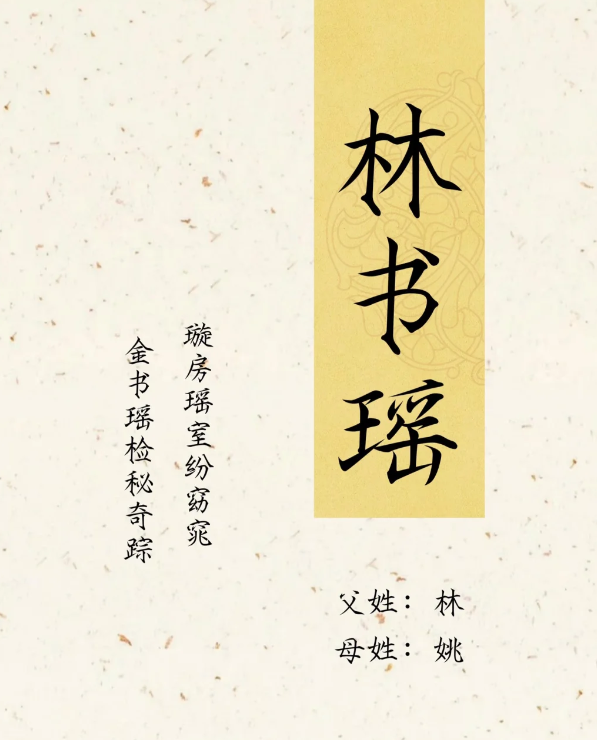 林书瑶
璇房瑶室纷窈窕
金书瑶检秘奇踪
父姓：林
母姓：姚